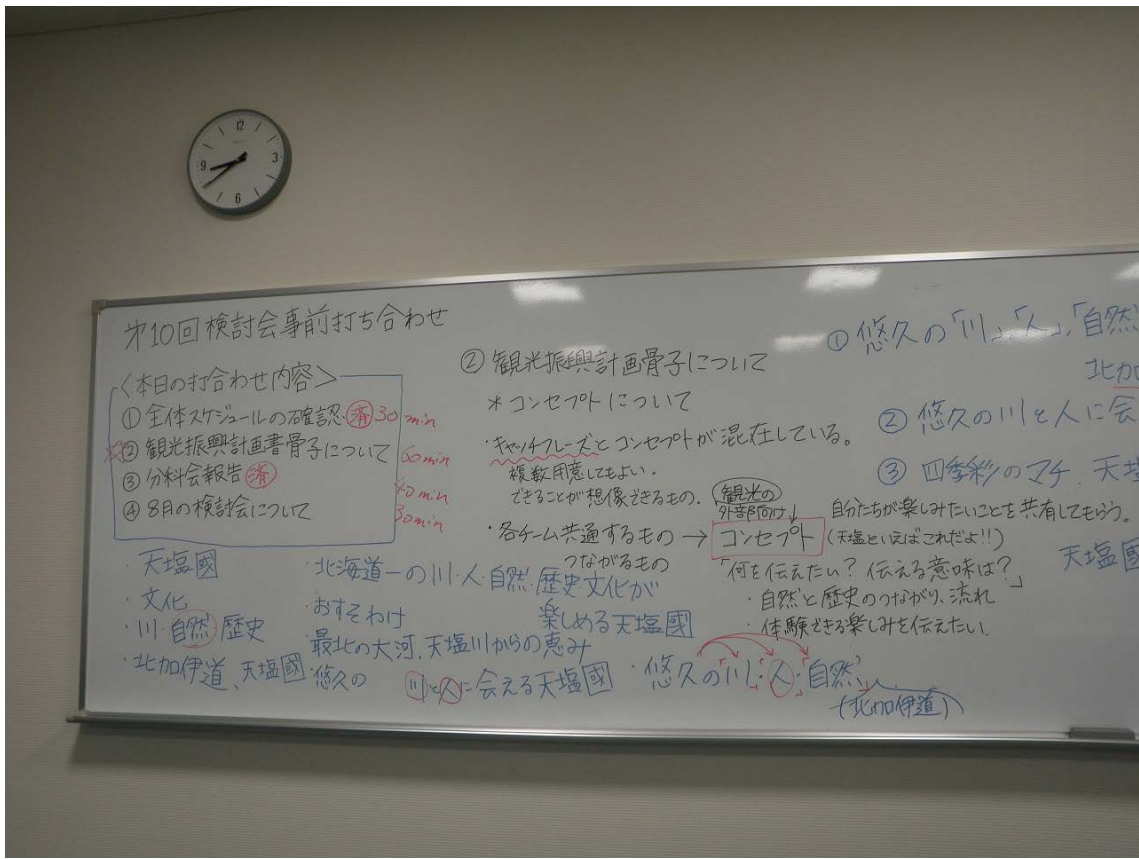 12
3
6
9
第10回検討会事前打ち合わせ
〈本日の打合わせ内容〉
① 全体スケジュールの確認・済 30min
② 観光振興計画書骨子について 60min
③ 分料会報告 済 40min
④ 8月の検討会について 30min
・天塩國
・文化
・川・自然・歴史
・北加伊道、天塩國
・北海道一の川・人・自然・歴史・文化が
楽しめる天塩國
・おすそわけ
・最北の大河、天塩川からの恵み
・悠久の川と人に会える天塩國
② 観光振興計画骨子について
*コンセプトについて
・キャッチフレーズとコンセプトが混在している。
複数用意してもよい。
できることが想像できるもの。
・各チーム共通するもの → コンセプト
つながるもの
観光の
外部向け↓
自分たちが楽しみたいことを共有してもらう。
(天塩といえばこれだよ!!)
「何を伝えたい?伝える意味は?」
・自然と歴史のつながり、流れ
・体験できる楽しみを伝えたい.
・悠久の「川」・「人」・「自然」
(北加伊道)
① 悠久の「川」、「人」、「自然
北加
② 悠久の川と人に会
③ 四季彩のマチ 天塩
天塩國